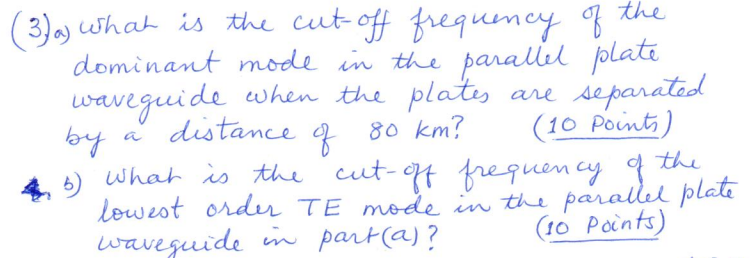 (3) a) What is the cut-off frequency of the
dominant mode in the parallel plate
waveguide when the plates are separated
by a distance of 80 km? (10 Points)
b) What is the cut-off frequency of the
lowest order TE mode in the parallel plate
waveguide in part (a)? (10 Points)